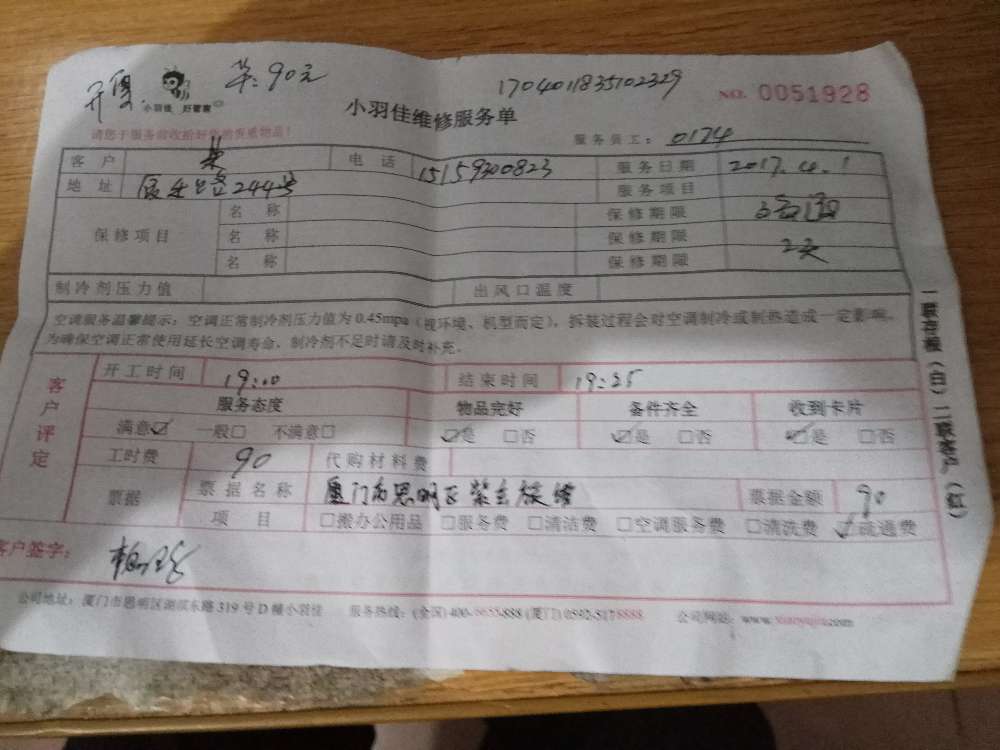 单:90元 1704011835102329
小羽佳 好管家 小羽佳维修服务单 NO. 0051928
请您于服务前收拾好您的贵重物品! 服务员工: 0174
客户 电话 15159300823 服务日期 2017.4.1
地址 244号 服务项目 疏通
保修项目 名称 保修期限
名称 保修期限 2天
名称 保修期限
制冷剂压力值 出风口温度
空调服务温馨提示:空调正常制冷剂压力值为0.45mpa(视环境、机型而定),拆装过程会对空调制冷或制热造成一定影响。
为确保空调正常使用延长空调寿命,制冷剂不足时请及时补充。
客户评定 开工时间 19:00 结束时间 19:25
服务态度 物品完好 备件齐全 收到卡片
满意☑ 一般□ 不满意□ ☑是 □否 ☑是 □否 ☑是 □否
工时费 90 代购材料费
票据 票据名称 厦门市思明区 票据金额 90
项目 □搬办公用品 □服务费 □清洁费 □空调服务费 □清洗费 ☑疏通费
客户签字:
公司地址:厦门市思明区湖滨东路319号D幢小羽佳 服务热线:(全国)400-6655-888 (厦门)0592-5178888 公司网站:www.xiaoyujia.com
一联存根(白)二联客户(红)